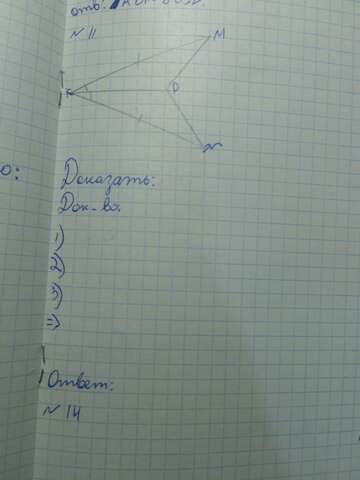 отв:
№ 11
M
K
D
N
о:
Доказать:
Док-во.
1)
2)
3)
=>
Ответ:
№ 14